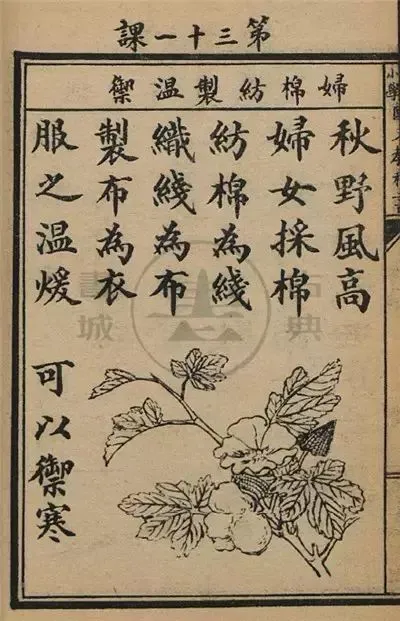 第三十一課
婦棉紡製温禦
秋野風高
婦女採棉
紡棉為綫
織綫為布
製布為衣
服之温煖
可以禦寒
古典
書城